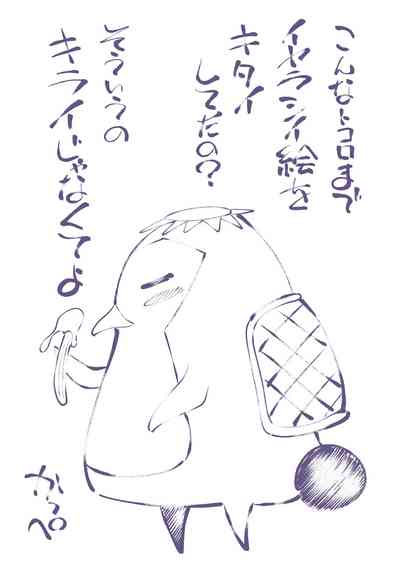 こんなトコロまで
イヤラシイ絵を
キタイ
してたの?
そういうの
キライじゃなくてよ
かっぺ